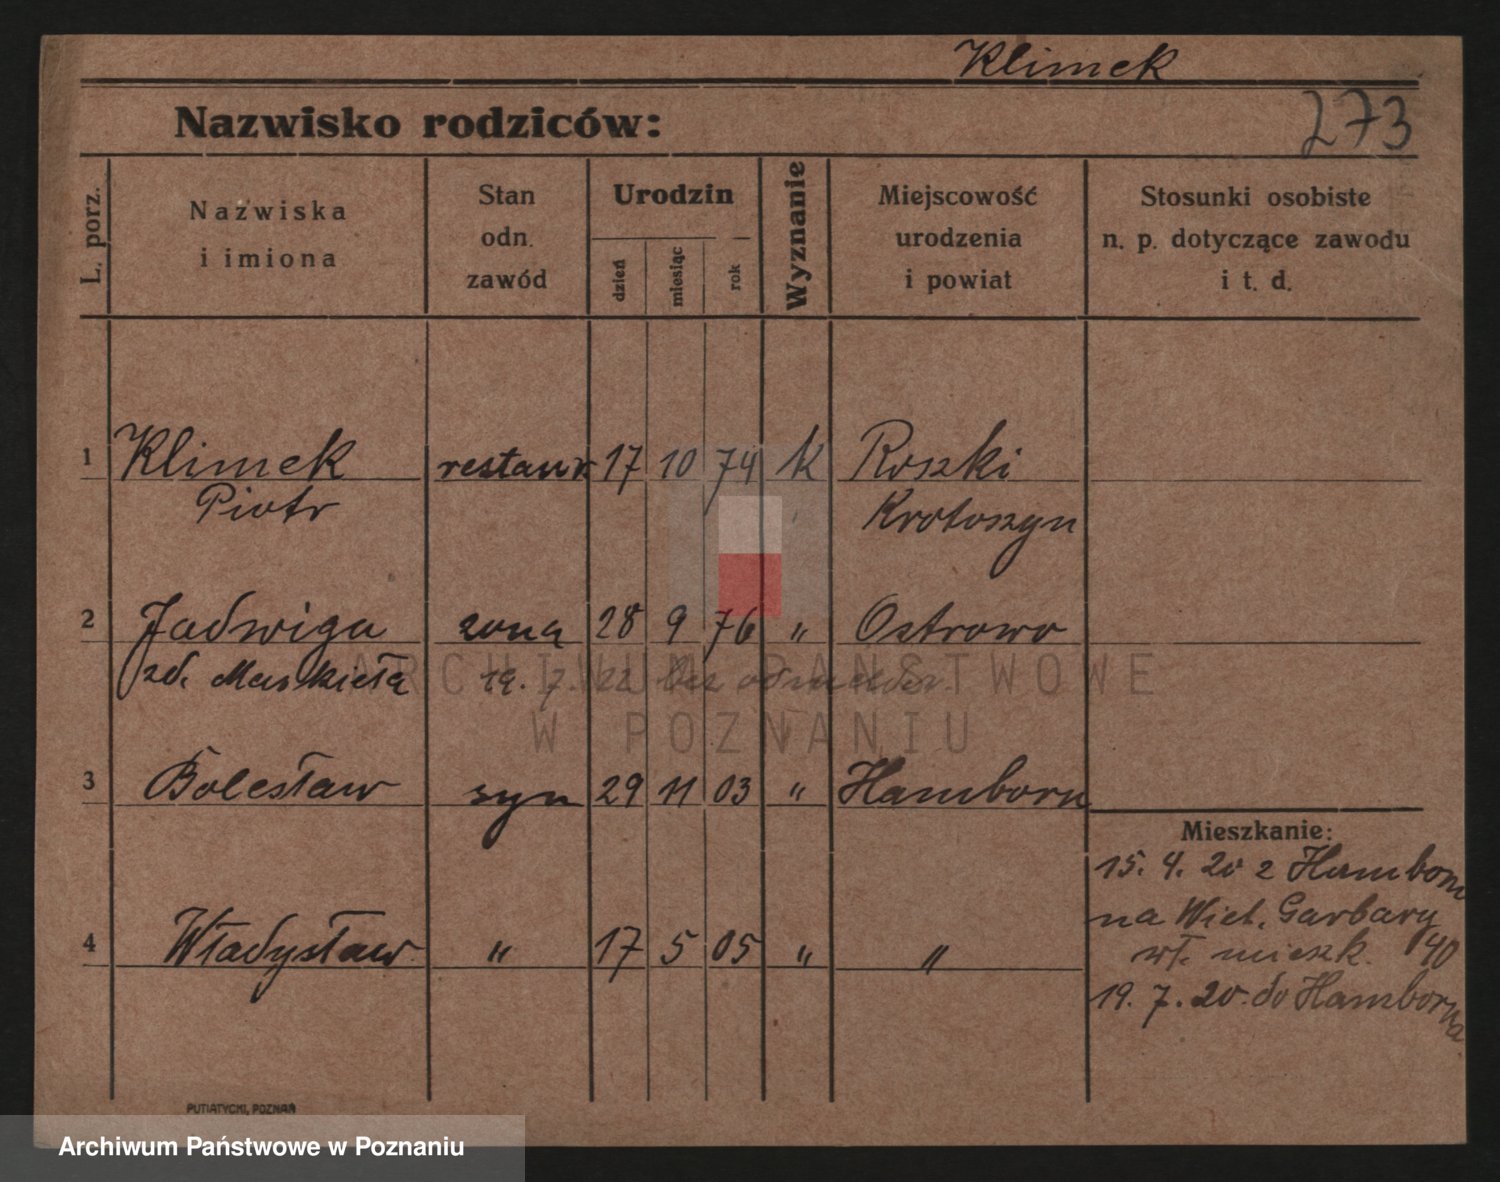 Klimek
Nazwisko rodziców:
273
L. porz.
Nazwiska
i imiona
Stan
odn.
zawód
Urodzin
dzień
miesiąc
rok
Wyznanie
Miejscowość
urodzenia
i powiat
Stosunki osobiste
n. p. dotyczące zawodu
i t. d.
1 Klimek restaur 17 10 74 k Roszki
Piotr Krotoszyn
2 Jadwiga żona 28 9 76 " Ostrowo
zd. 19. 7. 22 bez
ARCHIWUM PAŃSTWOWE
W POZNANIU
3 Bolesław syn 29 11 03 " Hamborn
Mieszkanie:
15. 4. 20 z Hamborn
na Wiel. Garbary
40
4 Władysław " 17 5 05 " "
wł. mieszk.
19. 7. 20. do Hamborna
PUTIATYCKI, POZNAŃ
Archiwum Państwowe w Poznaniu